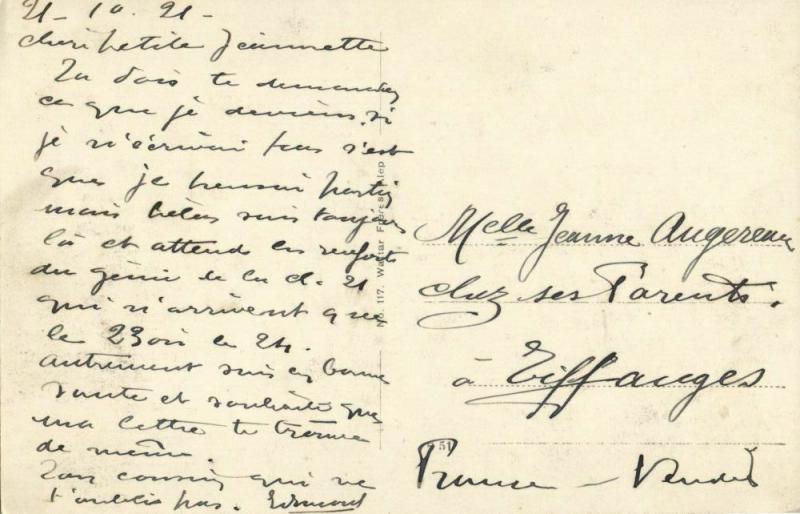 21-10-21-
cheri petite Jeannette
Tu dois te demander
ce que je deviens, si
je n'écrivai pas s'est
que je pensai partir
mais hélas suis toujours
là et attend les renforts
du génie de la cl. 21
qui n'arrivent que
le 23 ou le 24.
autrement suis en bonne
sante et souhaite que
ma lettre te trouve
de même.
Ton cousin qui ne
t'oublis pas. Edmond
No. 117. Wattar Frères, Alep
Melle Jeanne Augereau
chez ses Parents.
à Tiffauges
51
France - Vendée